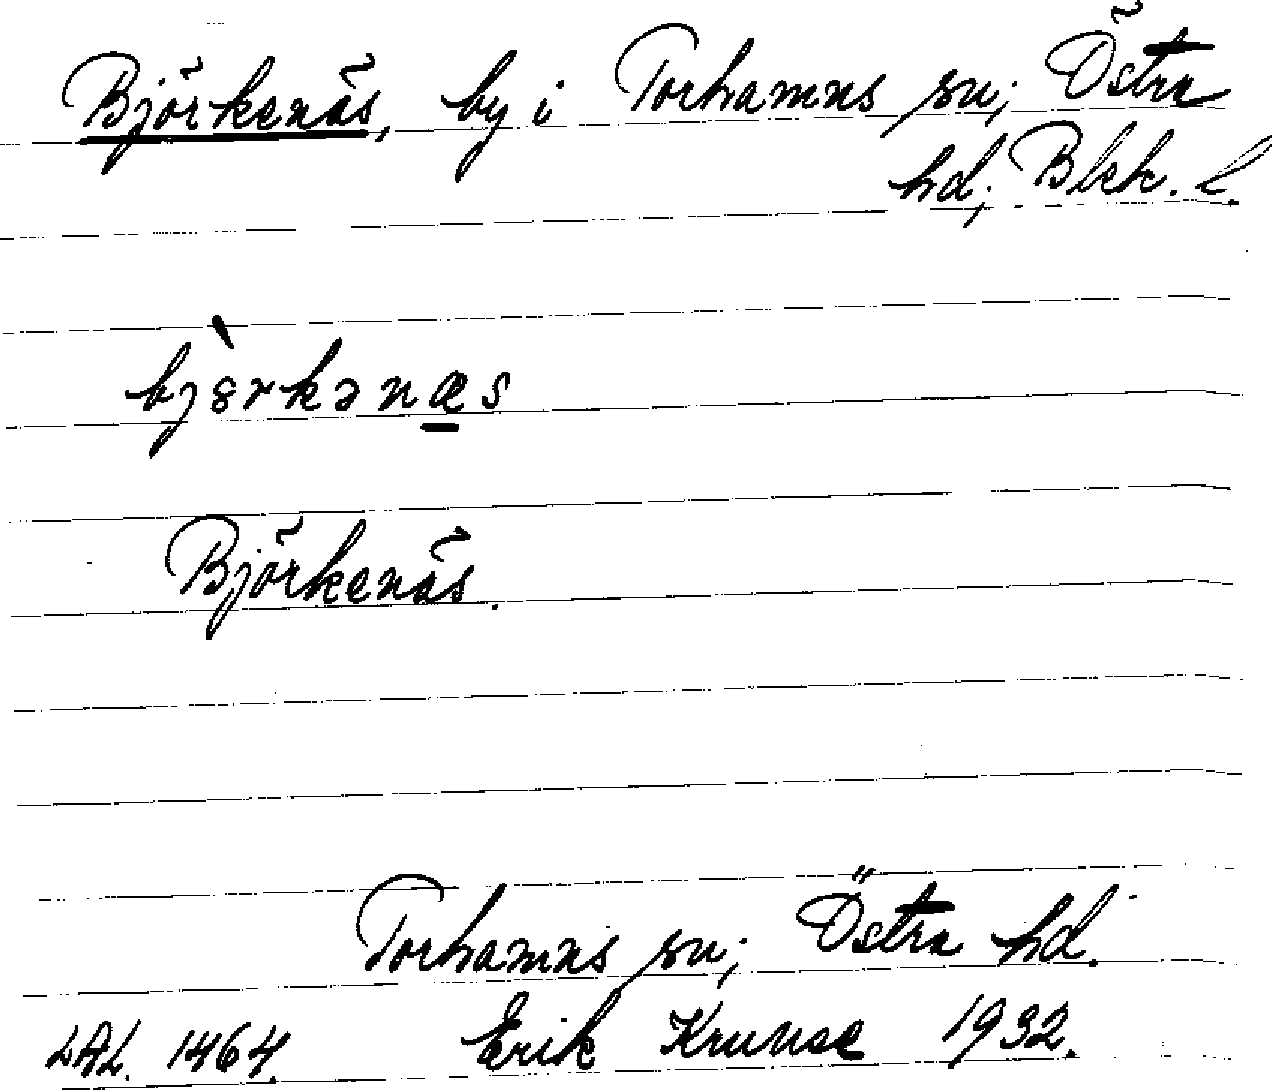 Björkenäs, by i Torhamns sn; Östra
hd; Blek. l.
bjø̀rkənæs
Björkenäs.
Torhamns sn; Östra hd.
LAL. 1464. Erik Kruuse 1932.